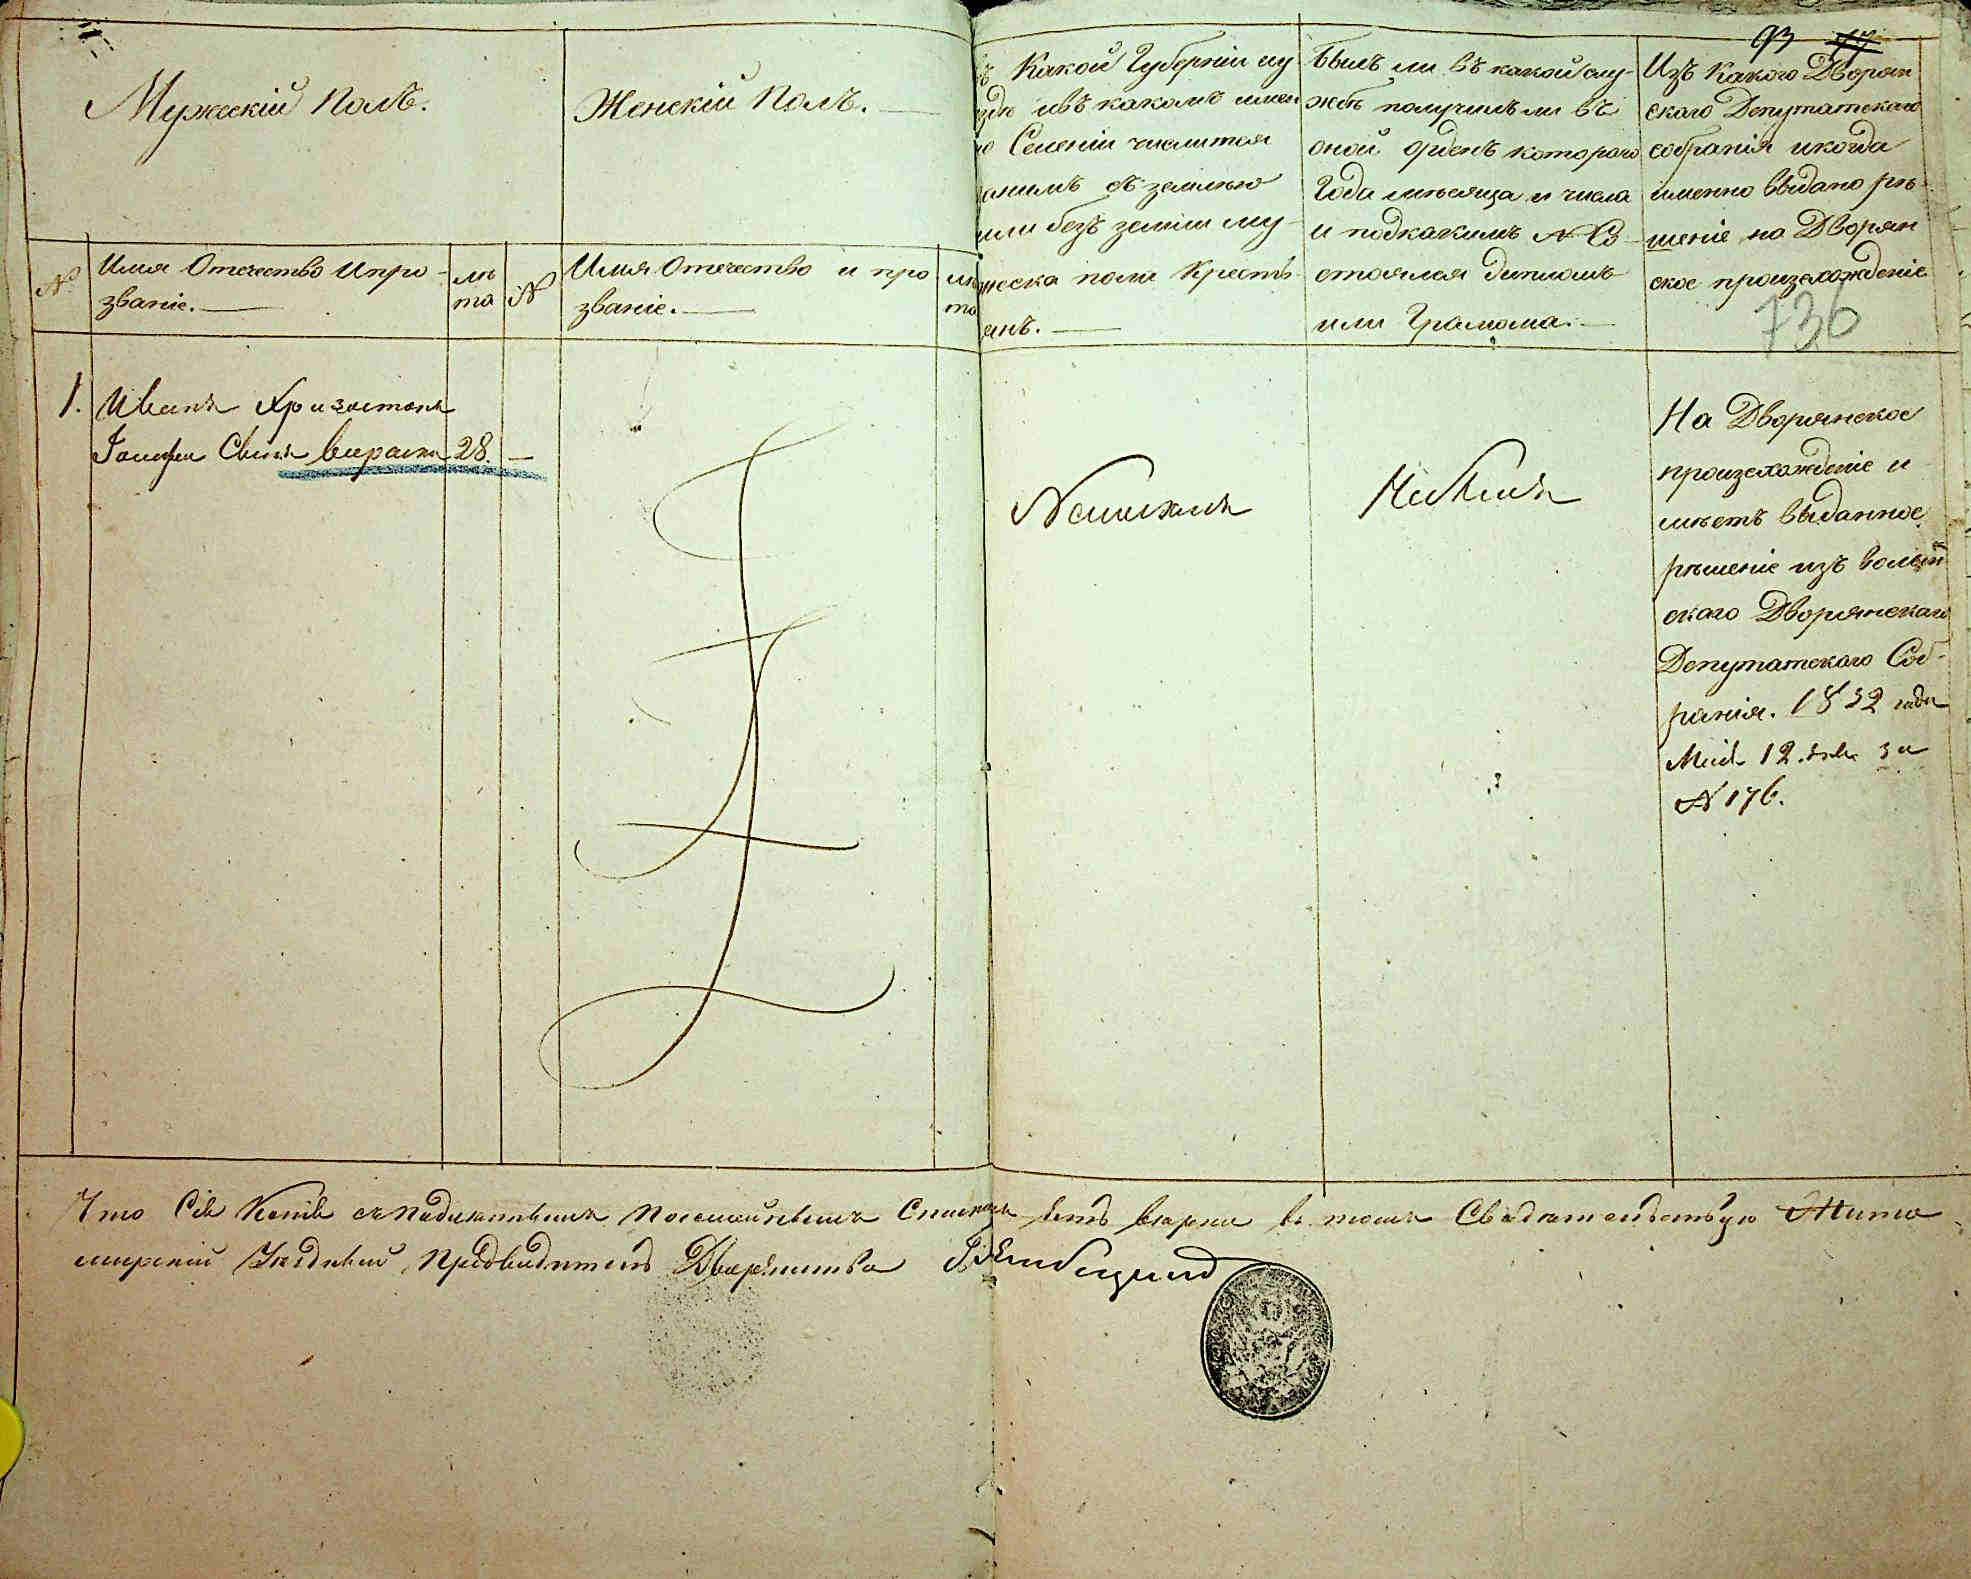 93
Мужескій Полъ.
Женскій Полъ.
Какой Губерніи иу
здѣ ивъ какомъ имен
Селеніи числится
занимъ съ землею
или безъ земли му-
жеска пола Крестъ
янъ.
Былъ ли въ какой слу-
жбѣ получилъ ли въ
оной орденъ котораго
Года мѣсяца и числа
и подкакимъ № Со-
стоялся дипломъ
или Грамота.
Изъ Какого Дворян
скаго Депутатскаго
собранія икогда
именно выдано рѣ-
шеніе на Дворян
ское произхожденіе
736
№
Имя Отечество Ипро-
званіе.
лѣ
та
№
Имя Отечество и про
званіе.
лѣ
та
1. Иванъ Хризостомъ
Іосифа Сынъ 28. —
Неимѣлъ
Небылъ
На Дворянское
произхожденіе и
мѣетъ выданное
рѣшеніе изъ Волын
скаго Дворянскаго
Депутатскаго Соб-
ранія. 1832 года
Мая 12. дня за
№ 176.
Что Сія Копія съ Подлиннымъ Посемейнымъ Спискомъ есть вѣрна въ томъ Свидѣтельствую Жито
мирскій Уездный Предводитель Дворянства